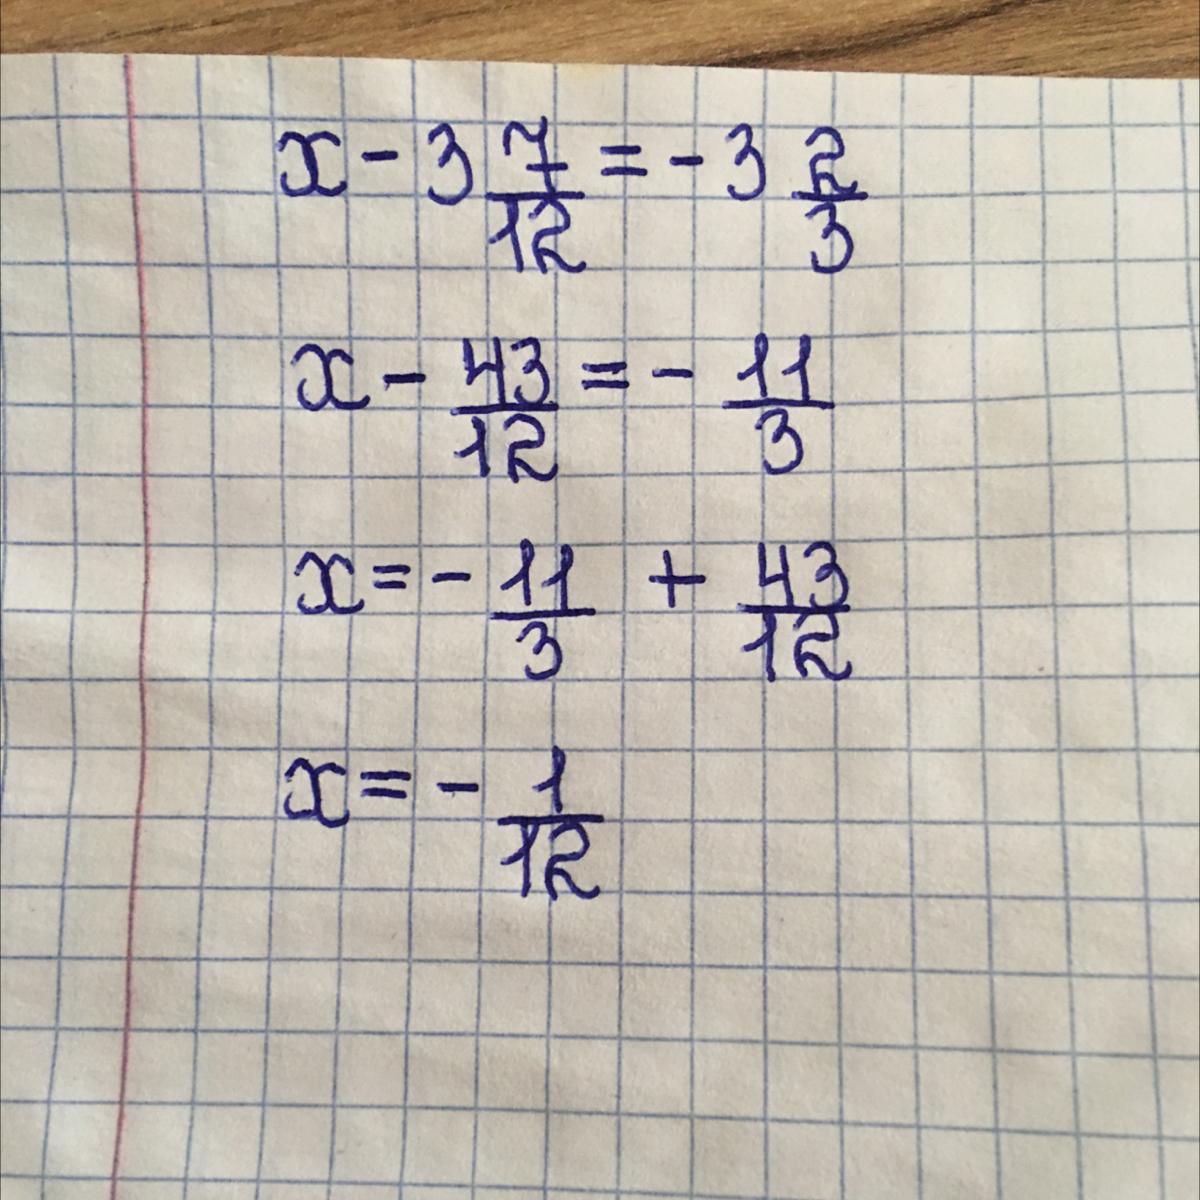 x - 3 7/12 = - 3 2/3
x - 43/12 = - 11/3
x = - 11/3 + 43/12
x = - 1/12